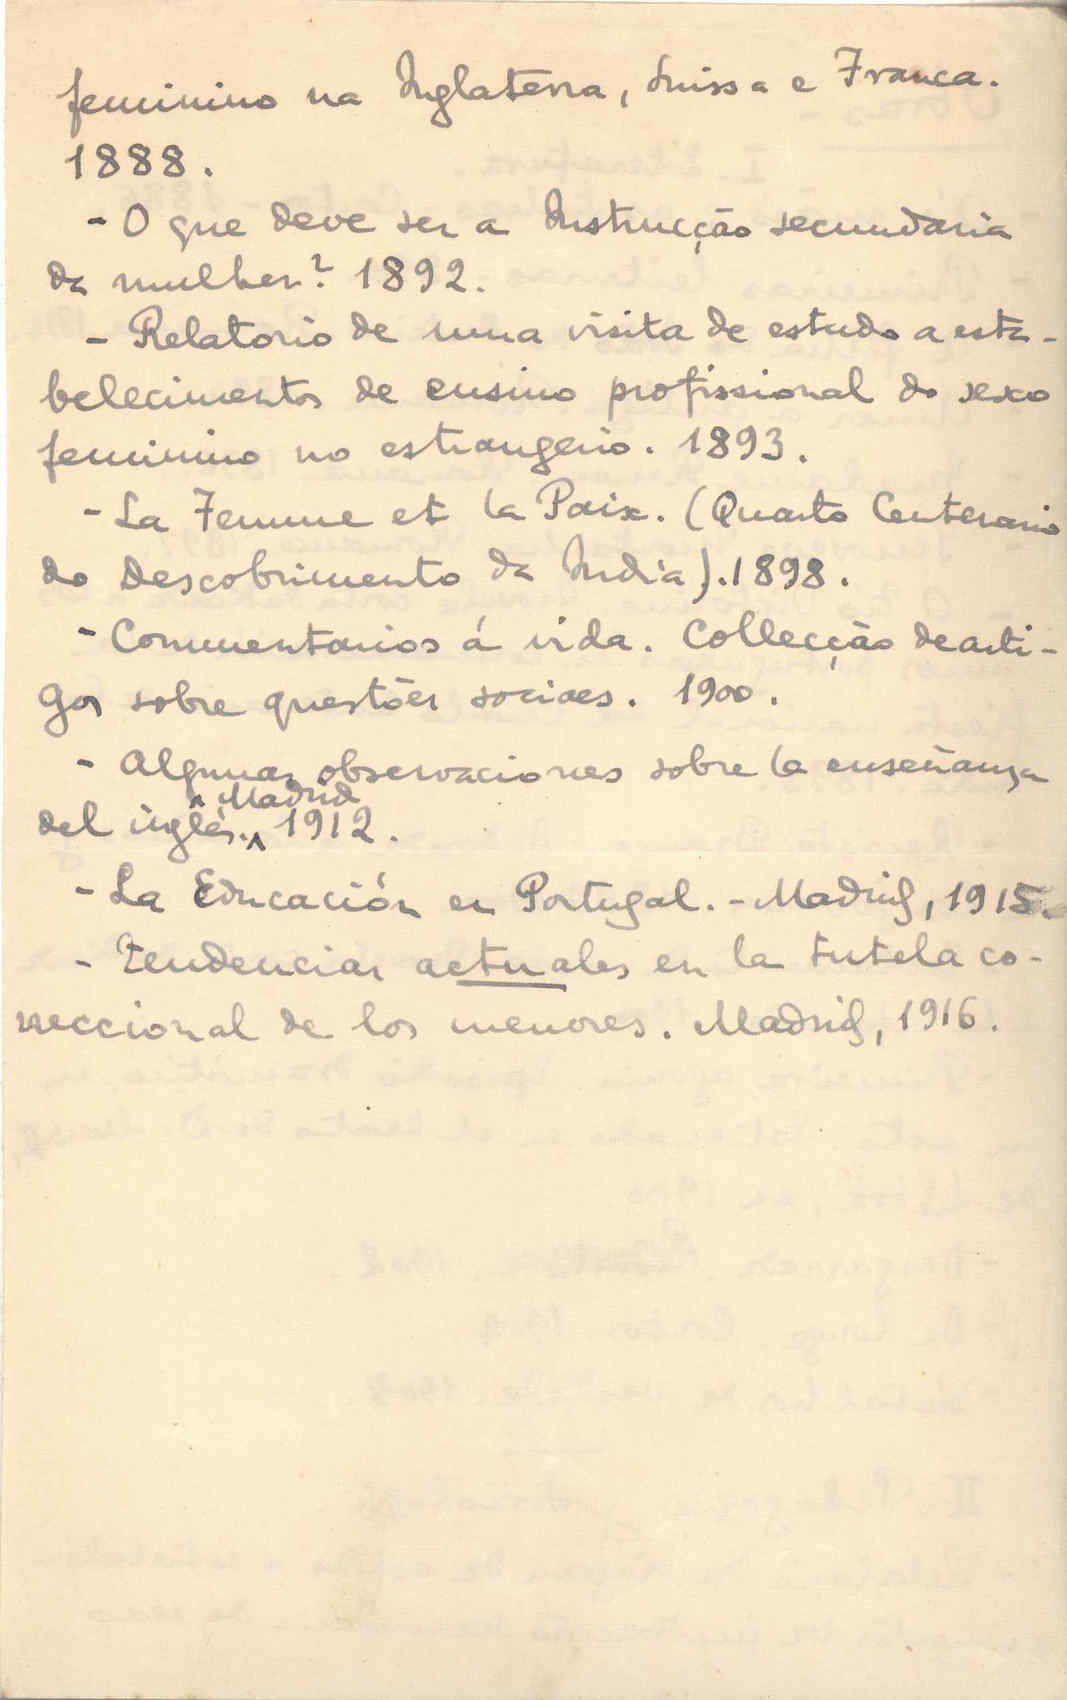 feminino na Inglaterra, Suissa e Franca.
1888.
- O que deve ser a Instrucção secundaria
da mulher? 1892.
- Relatorio de uma visita de estudo a esta-
belecimentos de ensino profissional do sexo
feminino no estrangeiro. 1893.
- La Femme et la Paix. (Quarto Centenario
do Descobrimento da India). 1898.
- Commentarios á vida. Collecção de arti-
gos sobre questões sociaes. 1900.
- Algunas observaciones sobre la enseñanza
del inglés. Madrid 1912.
- La Educación en Portugal. - Madrid, 1915.
- Tendencias actuales en la tutela co-
rreccional de los menores. Madrid, 1916.